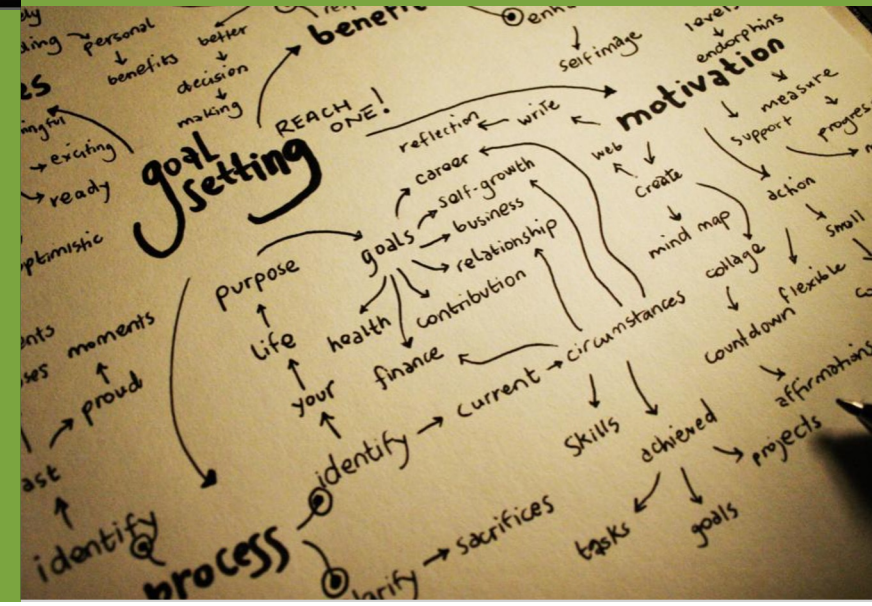 personal
benefits
better
decision
making
self image
endorphins
motivation
measure
support
REACH
ONE!
goal
setting
exciting
ready
reflection
write
web
create
mind map
collage
countdown
action
small
flexible
affirmations
projects
career
self-growth
business
relationship
contribution
goals
health
finance
purpose
life
your
identify
current
circumstances
skills
achieved
tasks
goals
moments
proud
identify
process
sacrifices